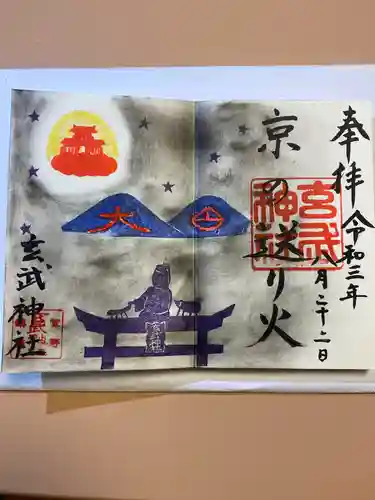 奉拝
令和三年
八月二十二日
京の送り火
玄武
神社
大
玄武神社
玄武神社